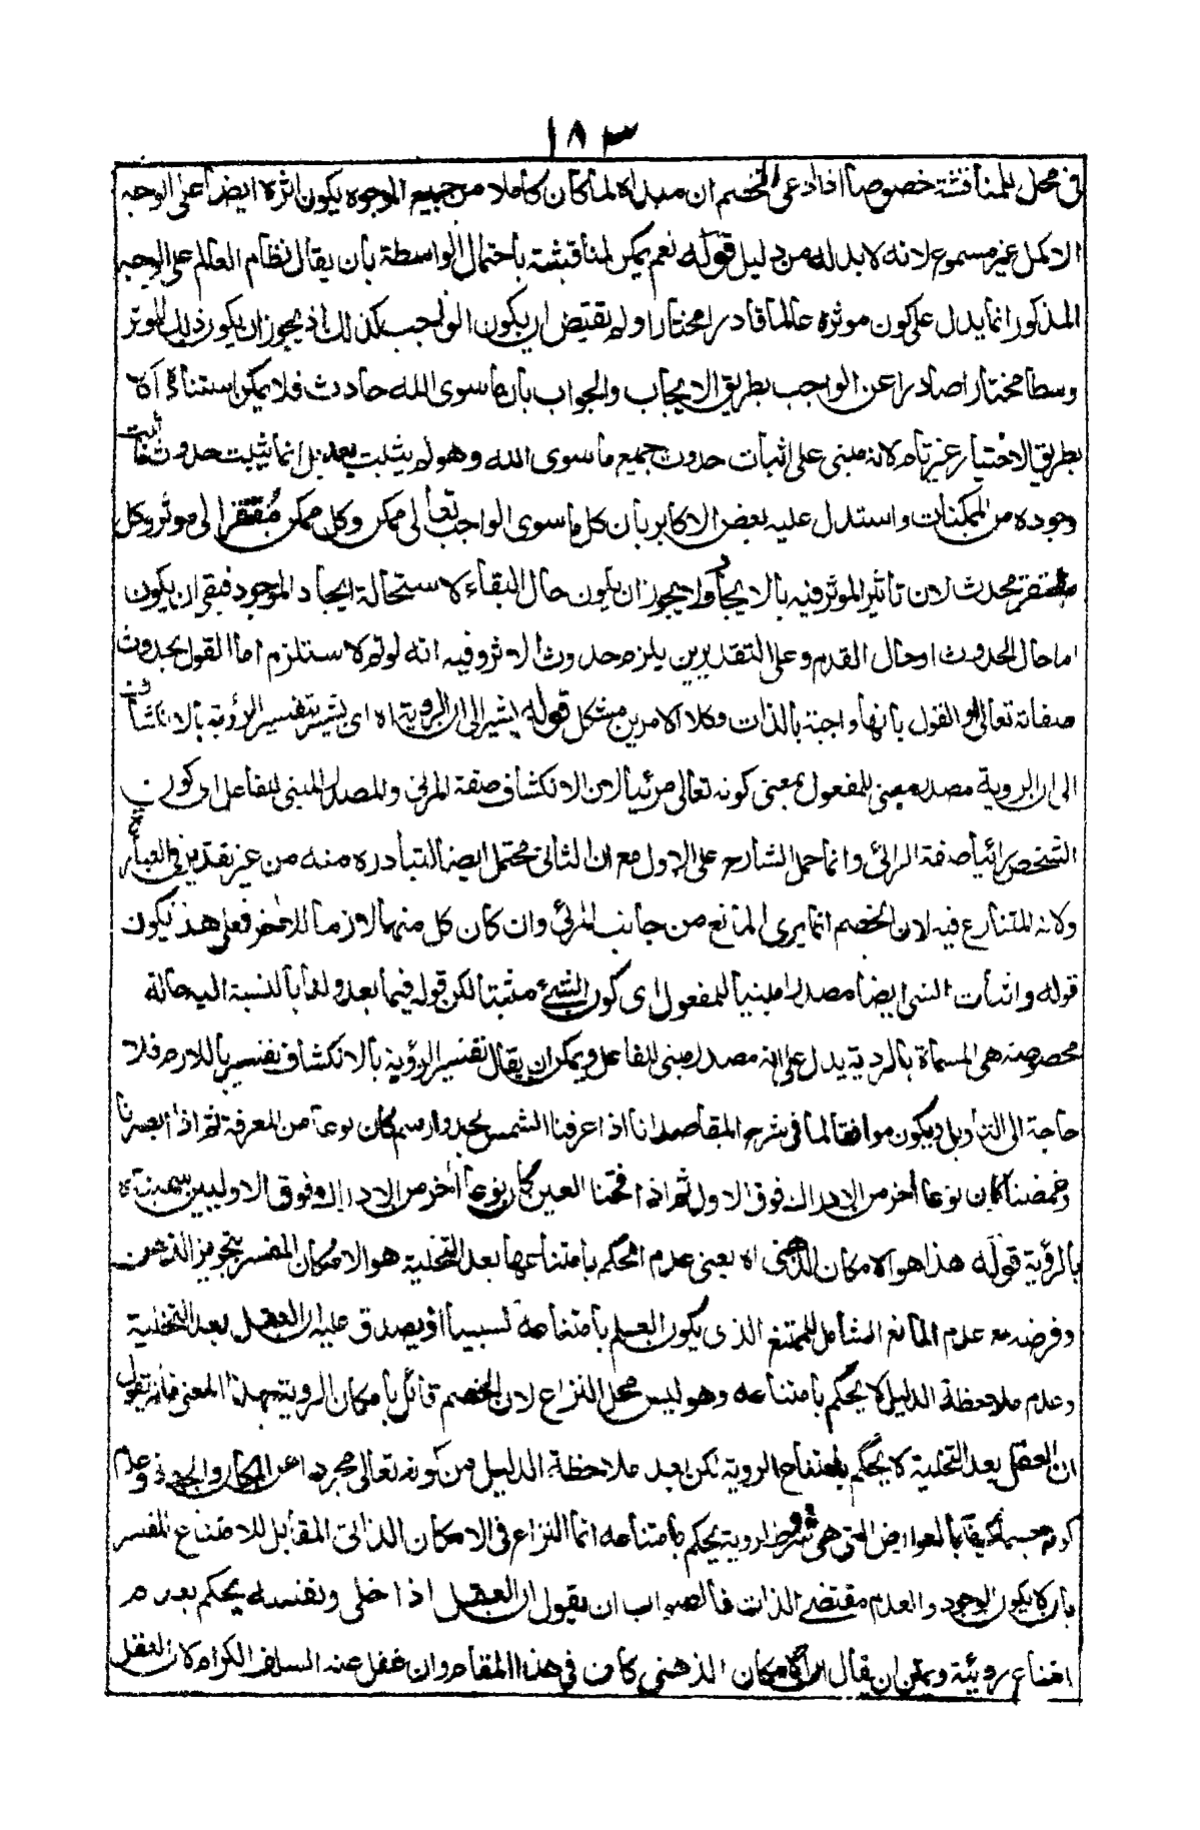 ١٨٣
في محل المناقشة خصوصا اذا ادعى الخصم ان مبدأه لما كان كاملا من جميع الوجوه يكون اثره ايضا على الوجه
الاكمل غير مسموع لانه لا بد له من دليل قوله نعم يمكن المناقشة باحتمال الواسطة بان يقال نظام العالم على الوجه
المذكور انما يدل على كون موثره عالما قادرا مختارا ولم يقتض ان يكون الواجب كذلك اذ يجوز ان يكون ذلك الموثر
وسطا مختارا صادرا عن الواجب بطريق الايجاب والجواب بان ما سوى الله حادث فلا يمكن استناده الا
بطريق الاختيار غير تام لانه مبنى على اثبات حدوث جميع ما سوى الله وهو لم يثبت بعد بل انما يثبت حدوث ما ثبت
وجوده من الممكنات واستدل عليه بعض الاكابر بان كل ما سوى الواجب تعالى ممكن وكل ممكن مفتقر الى موثر وكل
مفتقر محدث لان تاثير الموثر فيه بالايجاد لا يجوز ان يكون حال البقاء لاستحالة ايجاد الموجود فبقى ان يكون
اما حال الحدوث او حال القدم وعلى التقديرين يلزم حدوث الاثر وفيه انه لو تم لاستلزم اما القول بحدوث
صفاته تعالى او القول بانها واجبة بالذات وكلا الامرين مشكل قوله يشير الى ان الروية اه اى يشير تفسير الرؤية بالانكشاف
الى ان الروية مصدر مبني للمفعول بمعنى كونه تعالى مرئيا لان الانكشاف صفة المرئي والمصدر المبني للفاعل اى كون
الشخص رائيا صفة الرائي وانما حمل الشارح على الاول مع ان الثاني محتمل ايضا لتبادره منه من غير تقدير في العبارة
ولانه المتنازع فيه لان الخصم انما يرى المانع من جانب المرئي وان كان كل منهما لازما للاخر فعلى هذا يكون
قوله واثبات الشئ ايضا مصدرا مبنيا للمفعول اى كون الشئ مثبتا لكن قوله فيما بعد ولنا بالنسبة اليه حالة
مخصوصة هي المسماة بالروية يدل على انه مصدر مبني للفاعل ويمكن ان يقال تفسير الرؤية بالانكشاف تفسير باللازم فلا
حاجة الى التاويل ويكون موافقا لما في شرح المقاصد انا اذا عرفنا الشمس بحد او رسم كان نوعا من المعرفة ثم اذا ابصرنا
وغمضنا كان نوعا اخر من الادراك فوق الاول ثم اذا فتحنا العين كان نوعا آخر من الادراك فوق الاوليين سميناه
بالرؤية قوله هذا هو الامكان الذهني اه يعني عدم الحكم بامتناعها بعد التخلية هو الامكان المفسر بتجويز الذهن
وفرضه مع عدم المانع الشامل للممتنع الذي يكون العلم بامتناعه كسبيا اذ يصدق عليه ان العقل بعد التخلية
وعدم ملاحظة الدليل لا يحكم بامتناعه وهو ليس محل النزاع لان الخصم قائل بامكان الروية بهذا المعنى فانه يقول
ان العقل بعد التخلية لا يحكم بامتناع الروية لكن بعد ملاحظة الدليل من كونه تعالى مجردا عن المكان والجهة وعدم
كونه جسما مكيفا بالعوارض التي هي شروط الروية يحكم بامتناعه انما النزاع في الامكان الذاتي المقابل للامتناع المفسر
بان لا يكون الوجود والعدم مقتضى الذات فالصواب ان يقول ان العقل اذا خلى ونفسه يحكم بعدم
امتناع رويته ويمكن ان يقال الامكان الذهني كاف في هذا المقام وان غفل عنه السلف الكرام لان العقل